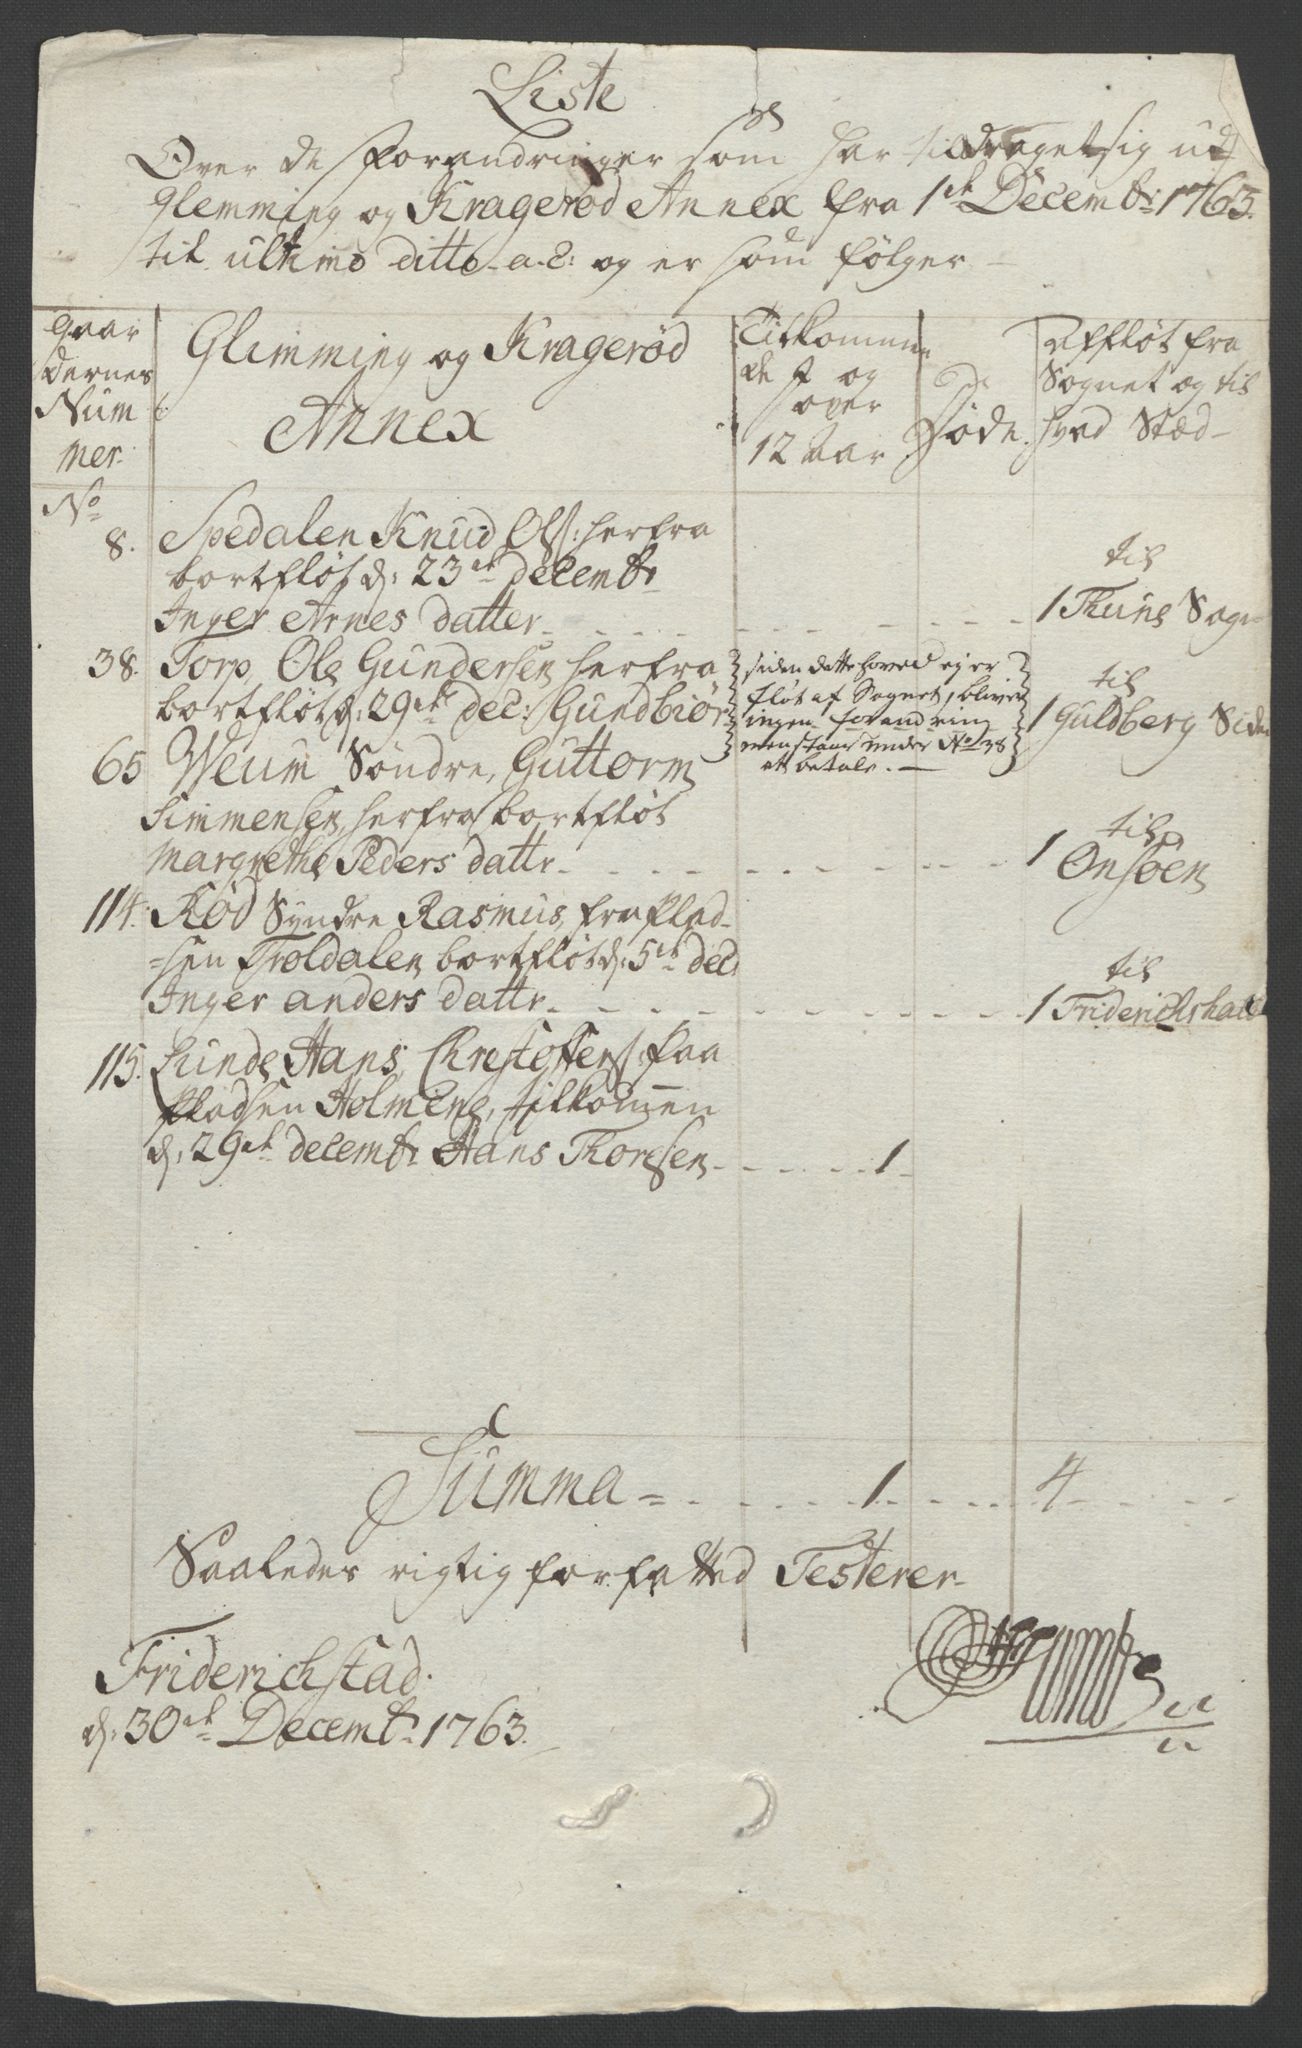 Liste
Over de forandringer som har tildraget sig ud
Glemming og Kragerød Annex fra 1ste Decembr: 1763.
til ultimo ditto a. c: og er som følger
Gaar
dernes
Num
mer.
Glimming og Kragerød
Annex
Tilkomme
de og
over
12 Aar
De
Døde.
Affløt fra
Sognet og til
hvad Stæd
No
8. Spedalen Knud Ols: herfra
bortfløt d: 23de decembr
Inger Arnes datter
til
1 Thune Sogn
38. Torp, Ole Gundersen herfra
bortfløt d: 29de dec: Gundbiør
siden dette hoved ej er
fløt af Sognet, bliver
ingen forandring
men staar under No 38
at betale.
til
1 Guldberg Siden
65 Weum Søndre, Guttorm
Simmensen, herfra bortfløt
Margrethe Peders dattr
til
1 Onsøen
114. Rød Syndre Rasmus, fra Plad-
-sen Troldalen bortfløt d: 5te dec
Inger anders dattr
til
1 Friderichshald
115. Lunde Hans Christoffers: paa
Pladsen Holmene, tilkommen
d: 29de decembr Hans Thoresen 1
Summa = 1 4
Saaledes rigtig forfatted Testerer
Friderichstad
d: 30te Decembr 1763.